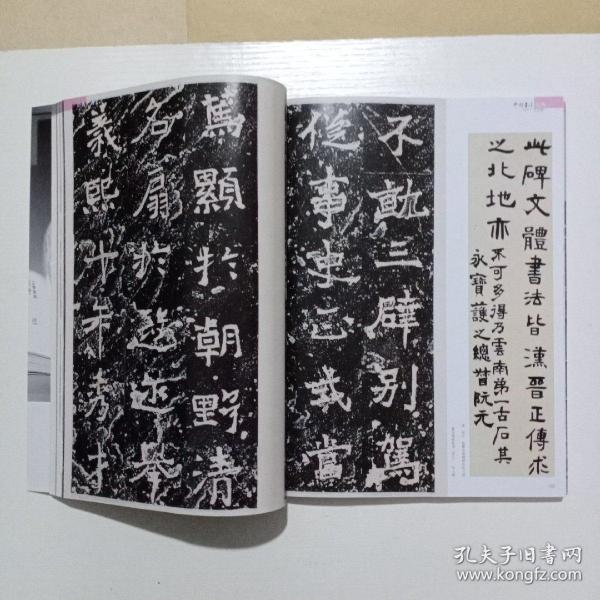 中国书法
此碑文體書法皆漢晉正傳求
之北地亦
不可多得乃雲南第一古石其
永寶護之總督阮元
不就三辟別駕
從事史正式當
篤顯於朝野清
名扇於遐迩舉
義熙十年秀才
孔夫子旧书网
www.kongfz.com